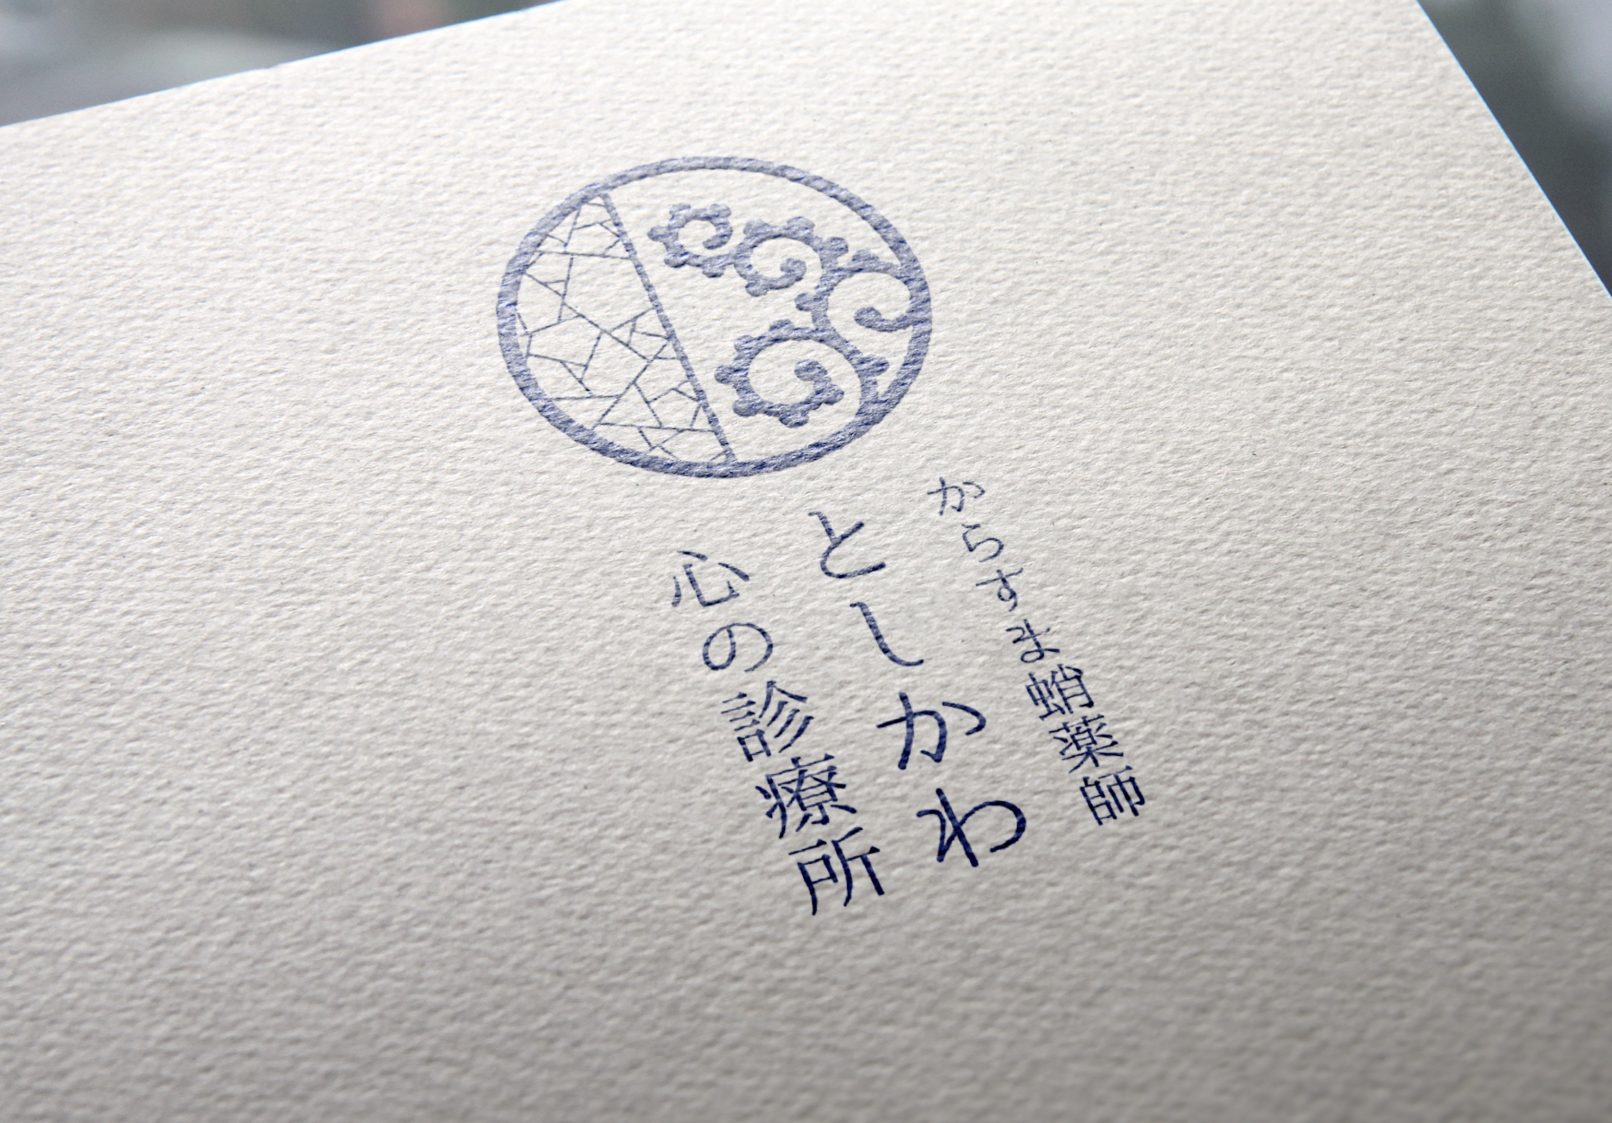 からすま蛸薬師
としかわ
心の診療所